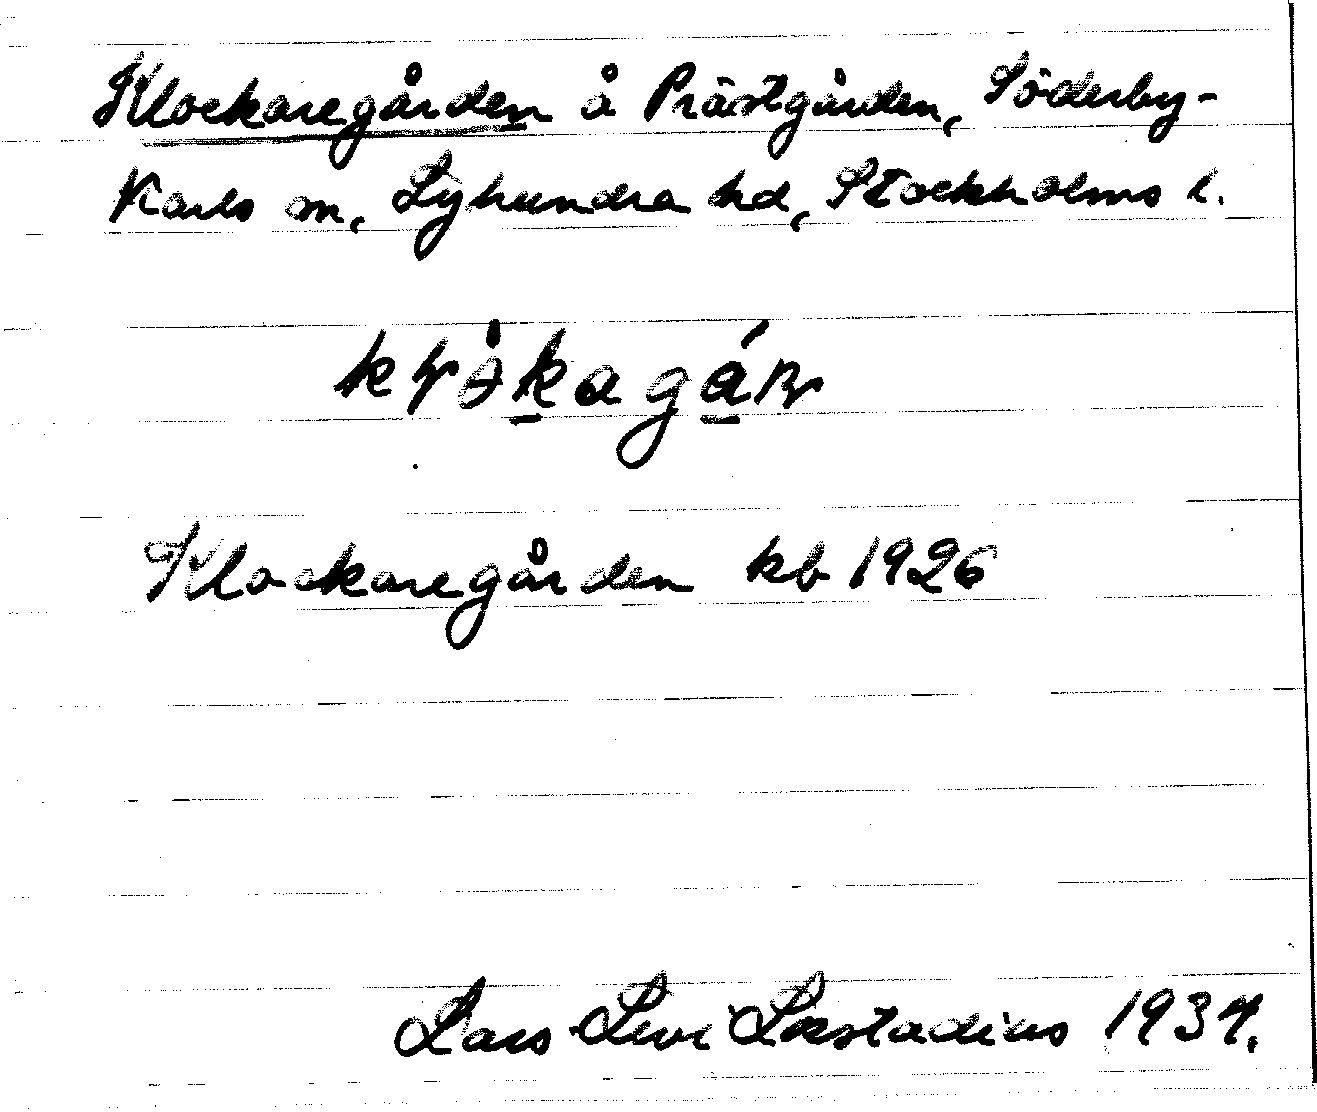 Klockaregården å Prästgården, Söderby-
Karls sn, Lyhundra hd, Stockholms l.
Klockaregården kb 1926
Lars-Levi Læstadius 1934.